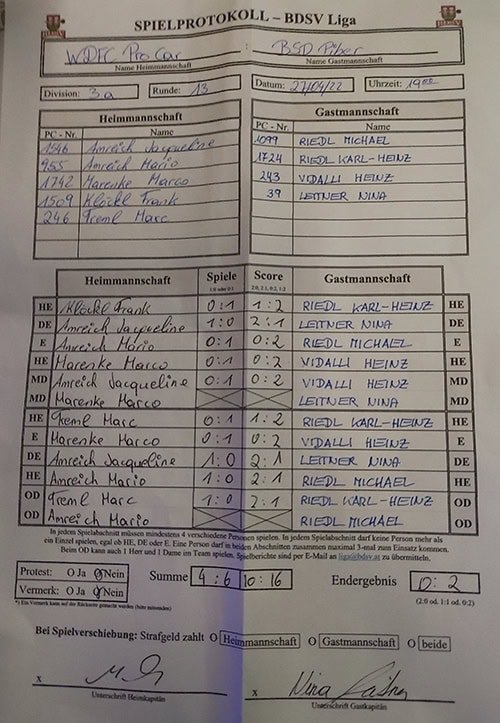 SPIELPROTOKOLL – BDSV Liga
WDFC Pro Car : BSD Piber
Name Heimmannschaft Name Gastmannschaft
Division: 3a Runde: 13 Datum: 27/04/22 Uhrzeit: 19
Heimmannschaft Gastmannschaft
PC - Nr. Name PC - Nr. Name
1546 Amreich Jacqueline 1099 RIEDL MICHAEL
955 Amreich Mario 1724 RIEDL KARL-HEINZ
1742 Marenke Marco 243 VIDALLI HEINZ
1509 Klöckl Frank 39 LEITNER NINA
246 Treml Marc
Heimmannschaft Spiele Score Gastmannschaft
1:0 oder 0:1 2:0, 2:1, 0:2, 1:2
HE Klöckl Frank 0:1 1:2 RIEDL KARL-HEINZ HE
DE Amreich Jacqueline 1:0 2:1 LEITNER NINA DE
E Amreich Mario 0:1 0:2 RIEDL MICHAEL E
HE Marenke Marco 0:1 0:2 VIDALLI HEINZ HE
MD Amreich Jacqueline 0:1 0:2 VIDALLI HEINZ MD
MD Marenke Marco LEITNER NINA MD
HE Treml Marc 0:1 1:2 RIEDL KARL-HEINZ HE
E Marenke Marco 0:1 0:2 VIDALLI HEINZ E
DE Amreich Jacqueline 1:0 2:1 LEITNER NINA DE
HE Amreich Mario 1:0 2:1 RIEDL MICHAEL HE
OD Treml Marc 1:0 2:1 RIEDL KARL-HEINZ OD
OD Amreich Mario RIEDL MICHAEL OD
In jedem Spielabschnitt müssen mindestens 4 verschiedene Personen spielen. In jedem Spielabschnitt darf keine Person mehr als
ein Einzel spielen, egal ob HE, DE oder E. Eine Person darf in beiden Abschnitten zusammen maximal 3-mal zum Einsatz kommen.
Beim OD kann auch 1 Herr und 1 Dame im Team spielen. Spielberichte sind per E-Mail an liga@bdsv.at zu übermitteln.
Protest: O Ja O Nein Summe 4:6 10:16 Endergebnis 0:2
Vermerk: O Ja O Nein (2:0 od. 1:1 od. 0:2)
*) Ein Vermerk kann auf der Rückseite gemacht werden (bitte anwenden)
Bei Spielverschiebung: Strafgeld zahlt O Heimmannschaft O Gastmannschaft O beide
x x Nina
Unterschrift Heimkapitän Unterschrift Gastkapitän